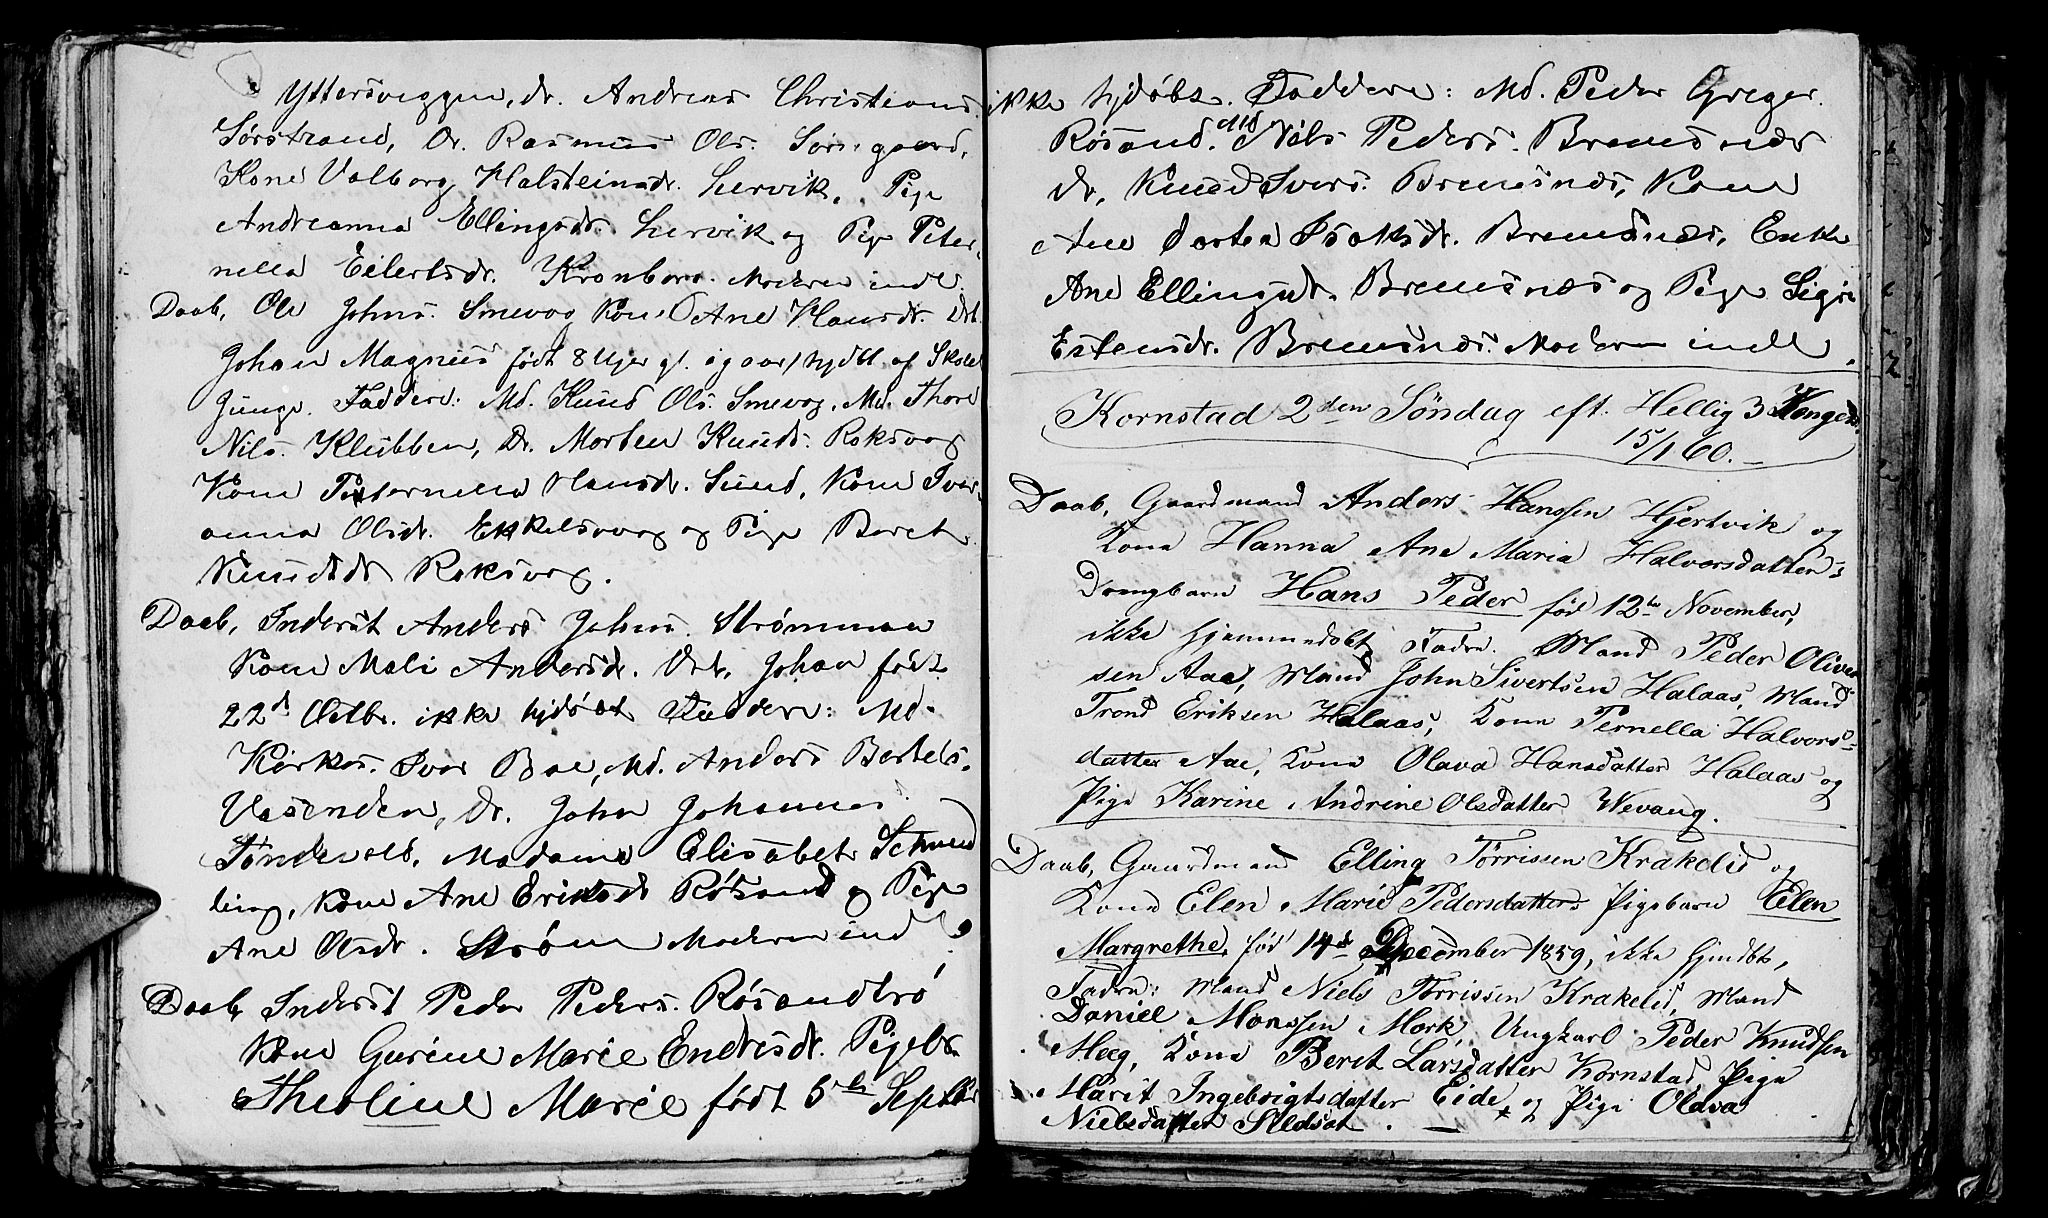 Yttersveggen, dr. Andreas Christians.
Sørstrand, Dr. Rasmus Ols. Sørsgaard,
Kone Valborg Halsteinsdr. Lervik, Pige
Andreanna Ellingsdr. Lervik og Pige Peter-
nella Eilertsdr. Kronborg. Moderen indl.
Daab, Ole Johns. Smevog Kone Ane Hansdr. Drb.
Johan Magnus født 8 Ujer gl. i gaar hjdbt. af Skole
Junge. Faddere: Md. Knud Ols. Smevog, Md. Thore
Nils. Klubben, Dr. Morten Knuds. Roksvog
Kone Peternella Hansdr. Sund, Kone Iver-
anna Olsdr. Ekkelsvog og Pige Beret
Knudsdr Roksvog.
Daab, Inderst Anders Johns. Strømmen
Kone Mali Andersdr. Drb. Johan født
22d Octbr. ikke hjdøbt Faddere: Md.
Kirkes. Iver Boe, Md. Anders Bertels.
Vasenden, Dr. John Johannes.
Tøndevold, Madame Elisabet Schmed
ling, Kone Ane Eriksdr Røsand og Pige
Ane Olsdr. Strøm Moderen indl
Daab, Inderst Peder Peders. Røsandbrø
Kone Gurine Marie Endresdr. Pigeb.
Theoline Marie født 5te Septbr
ikke hjdøbt. Faddere: Md. Peder Greger.
Røsand. Md Nils Peders. Bremsnes
dr, Knud Ivers. Bremsnes, Kone
Ane Dortea Isaksdr. Bremsnes, Enke
Ane Ellingsdr. Bremsnes og Pige Sigri
Estensdr. Bremsnes. Moderen indl.
Kornstad 2den Søndag eft. Hellig 3 Konged.
15/1 60.
Daab, Gaardmand Anders Hanssen Hjertvik og
Kone Hanna Ane Maria Halvorsdatters
Drengbarn Hans Peder fød 12te November,
ikke hjemmedøbt, Fadre. Mand Peder Oliver
sen Aae, Mand John Sivertsen Halaas, Mand
Trond Eriksen Halaas, Kone Pernella Halvors-
datter Aae, Kone Olava Hansdatter Halaas og
Pige Karine Andrine Olsdatter Wevang.
Daab, Gaardmand Elling Tørrissen Krakelid og
Kone Elen Marie Pedersdatters Pigebarn Elen
Margrethe, fød 14de December 1859, ikke hjmdbt,
Fadre: Mand Niels Tørrissen Krakelid, Mand
Daniel Monssen Mork, Ungkarl Peder Knudsen
Meeg, Kone Berit Larsdatter Kornstad Pige
Marit Ingebrigtsdatter Eide og Pige Olava
Nielsdatter Sledsot.